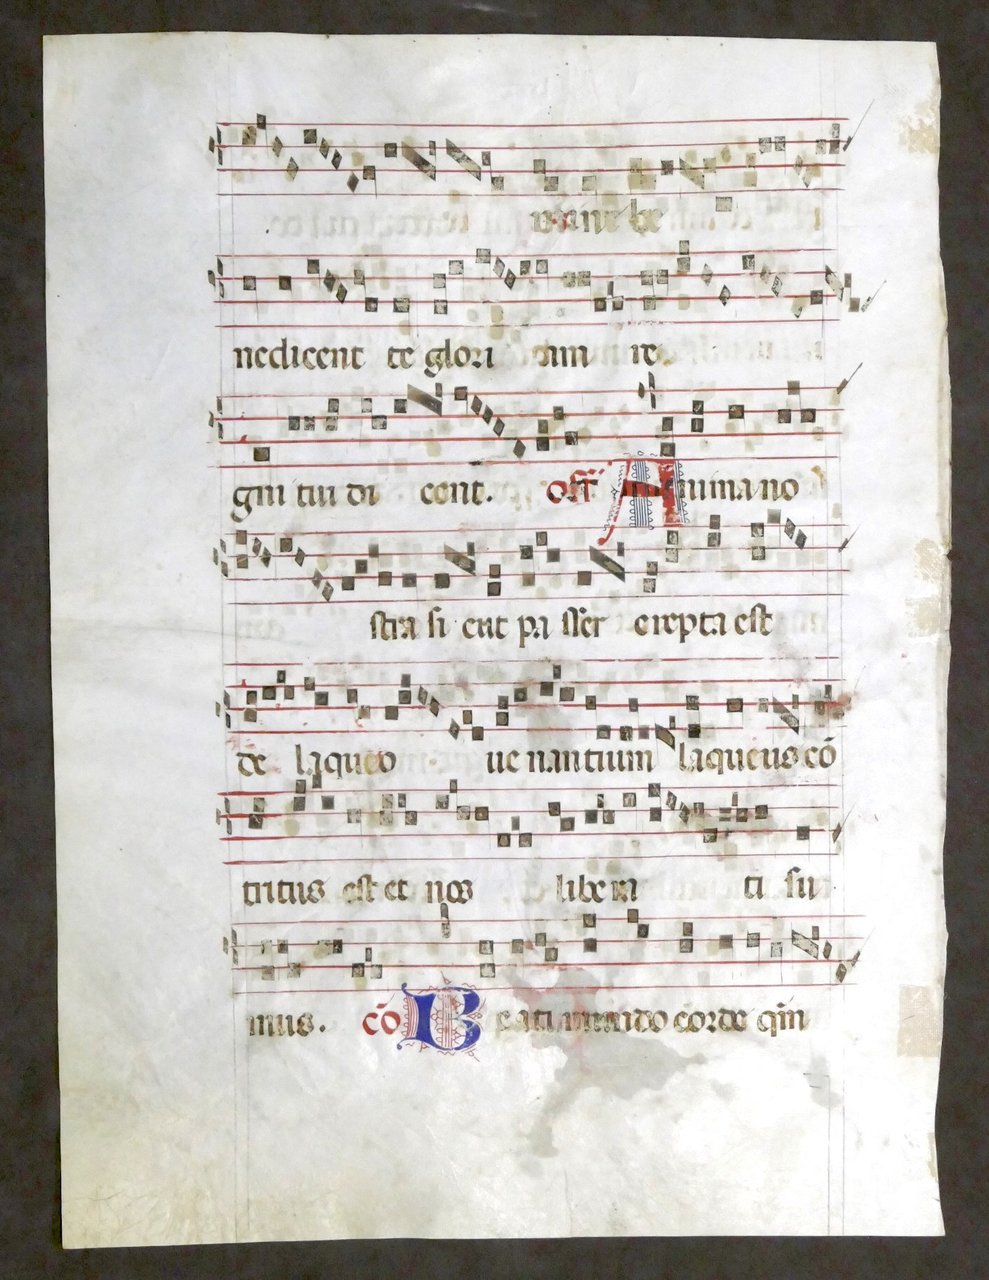 ne dicent te glori am re
gni tui di cent. off Anima no
stra si cut pa sser erepta est
de laqueo ue nantium laqueus cō
tritus est et nos libera ti su
mus. cō Beati mundo corde qm̄